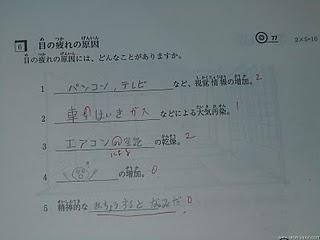 6 目の疲れの原因
77
2×5=10
目の疲れの原因には、どんなことがありますか。
1 パソコン,テレビ など、視覚情報の増加。 2
2 車のはいきガス などによる大気汚染。 1
3 エアコン の乾燥。 2
による
4 の増加。 0
5 精神的な なみだ 0